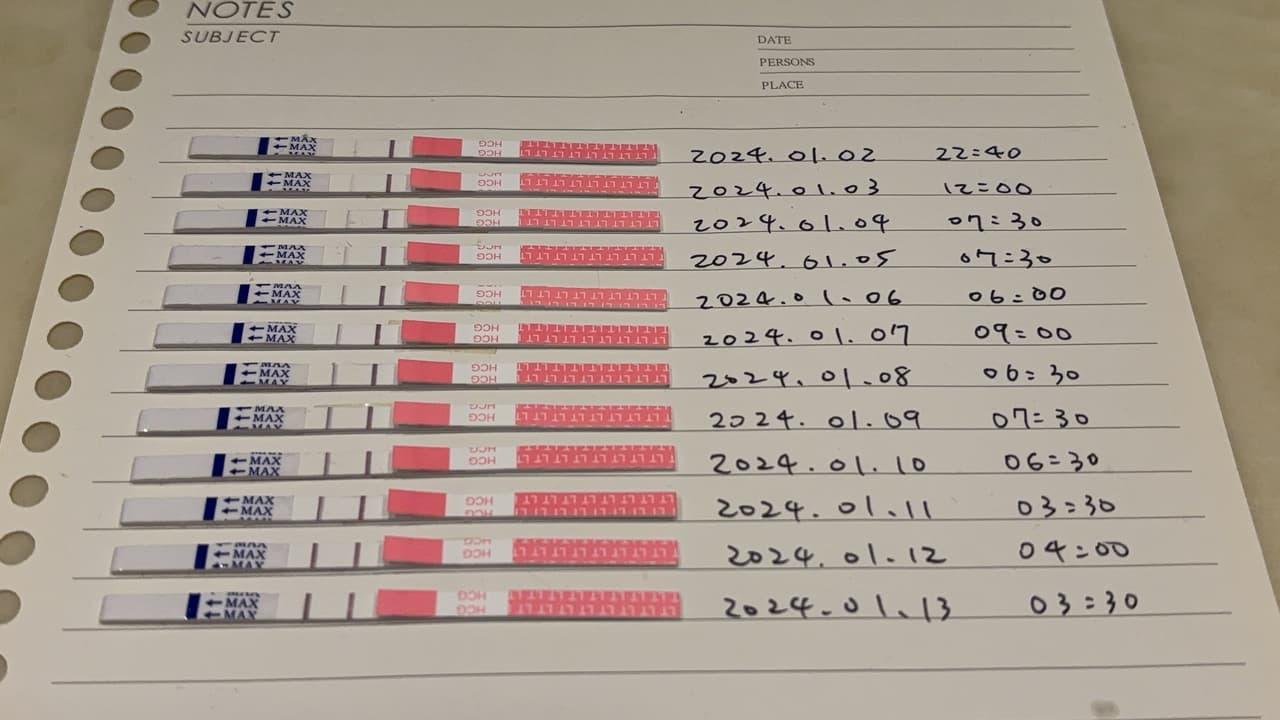 NOTES
SUBJECT
DATE
PERSONS
PLACE
MAX MAX HCG HCG 2024.01.02 22:40
MAX MAX HCG HCG 2024.01.03 12:00
MAX MAX HCG HCG 2024.01.04 07:30
MAX MAX MAX HCG HCG 2024.01.05 07:30
MAX MAX HCG HCG 2024.01.06 06:00
MAX MAX HCG HCG 2024.01.07 09:00
MAX MAX MAX HCG HCG 2024.01.08 06:30
MAX MAX MAX HCG HCG 2024.01.09 07:30
MAX MAX HCG HCG 2024.01.10 06:30
MAX MAX HCG HCG 2024.01.11 03:30
MAX MAX MAX HCG HCG 2024.01.12 04:00
MAX MAX HCG HCG 2024.01.13 03:30